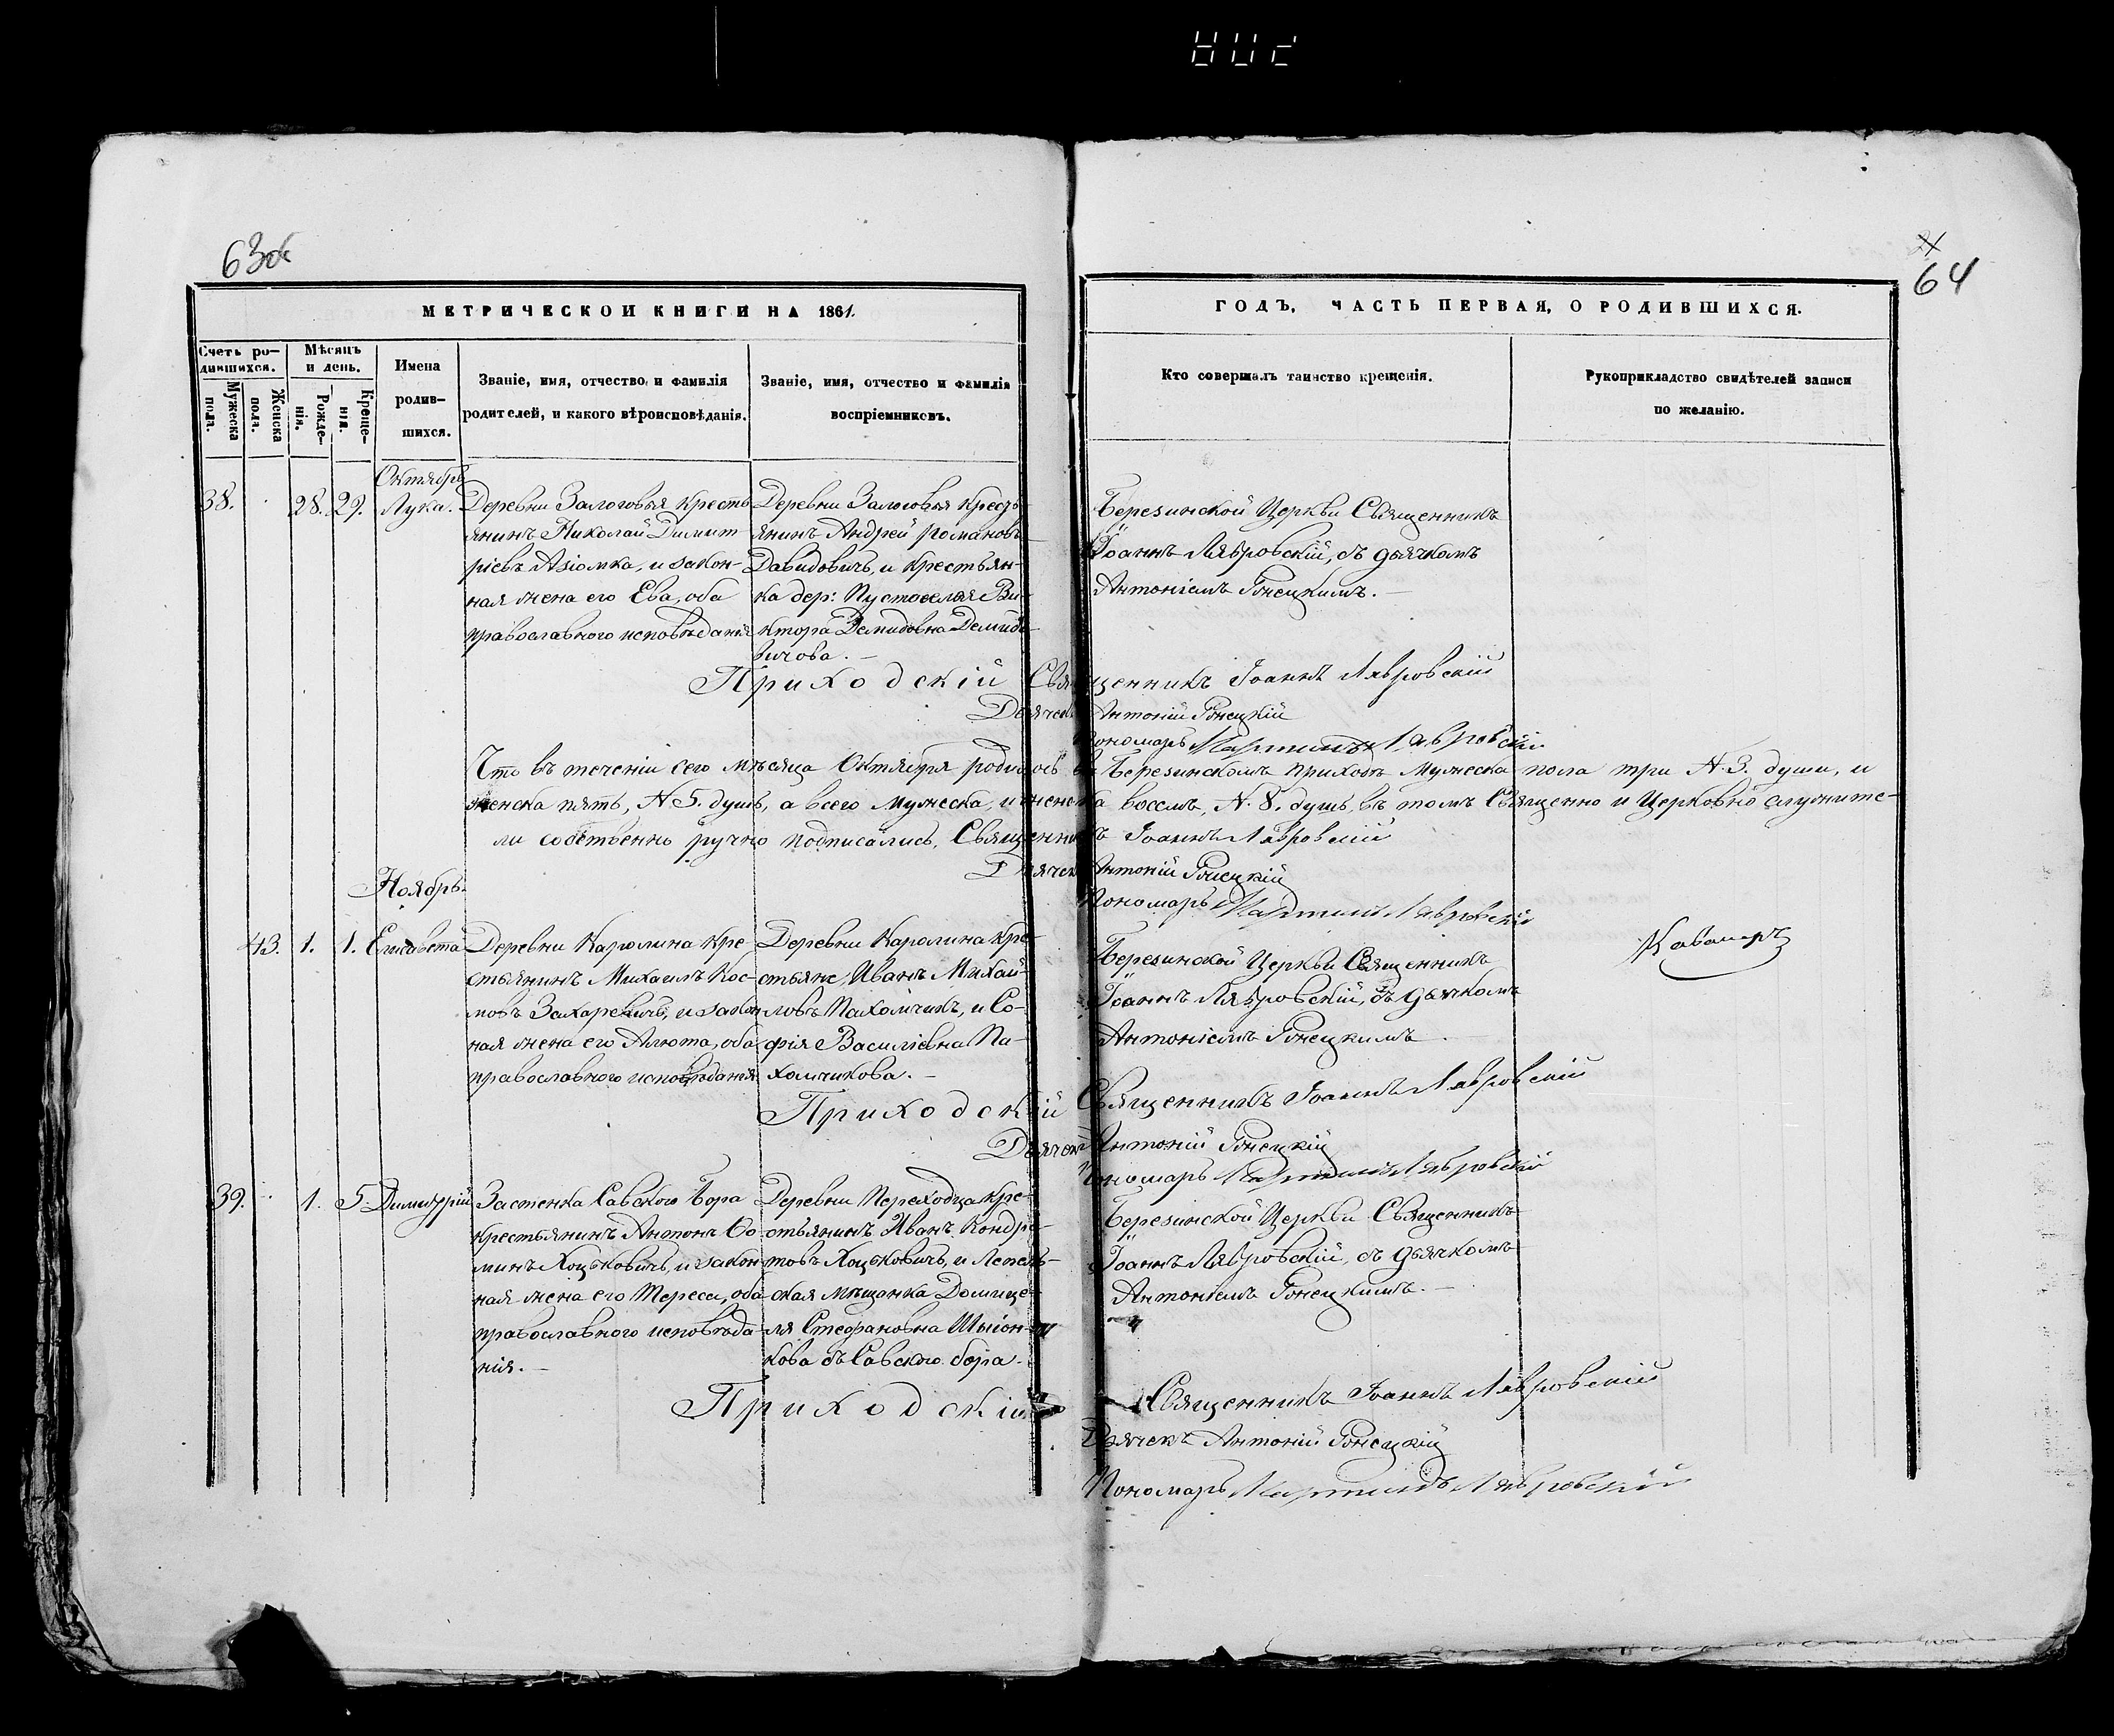 63об
21
64
МЕТРИЧЕСКОЙ КНИГИ НА 1861.
ГОДЪ, ЧАСТЬ ПЕРВАЯ, О РОДИВШИХСЯ.
Счетъ ро-
дившихся.
Мужеска пола.
Женска пола.
Мѣсяцъ
и день.
Рожде-
нія.
Креще-
нія.
Имена
родив-
шихся.
Званіе, имя, отчество и фамилія
родителей, и какого вѣроисповѣданія.
Званіе, имя, отчество и фамилія
воспріемниковъ.
Кто совершалъ таинство крещенія.
Рукоприкладство свидѣтелей записи
по желанію.
Октябрь
38. 28. 29. Лука.
Деревни Залоговья кресть
янинъ Николай Димит
ріевъ Азіомка, и закон-
ная жена его Ева, оба
православнаго исповѣданія
Деревни Залоговья кресть
янинъ Андрей Романовъ
Давидовичъ, и крестьян-
ка дер: Пустоселья Ви-
ктора Демидовна Демидо-
вичова.
Березинской Церкви Священникъ
Іоаннъ Лявровскій, съ дьячкомъ
Антоніемъ Гонецкимъ.
Приходскій Священникъ Іоаннъ Лявровскій
Дьячекъ Антоній Гонецкій
Пономарь Мартинъ Лявровскій
Что въ теченіи сего мѣсяца Октября родилось въ Березинскомъ приходѣ Мужеска пола три №3. души, и
женска пять, №5. душъ, а всего мужеска, и женска восемь, №8. душъ, въ томъ Священно и Церковно служите-
ли собственно ручно подписались, Священникъ Іоаннъ Лявровскій
Дьячекъ Антоній Гонецкій
Пономарь Мартинъ Лявровскій
Ноябрь.
43. 1. 1. Елисавета
Деревни Каролина кре-
стьянинъ Михаилъ Кос-
мовъ Захаревичъ, и закон
ная жена его Алюта, оба
православнаго исповѣданія
Деревни Каролина кре-
стьяне, Иванъ Михай-
ловъ Пахомчикъ, и Со-
фія Василіевна Па-
хомчикова.
Березинской Церкви Священникъ
Іоаннъ Лявровскій, съ дьячкомъ
Антоніемъ Гонецкимъ.
Приходскій Священникъ Іоаннъ Лявровскій
Дьячекъ Антоній Гонецкій
Пономарь Мартинъ Лявровскій
39. 1. 5. Димитрій
Застенка Савского Бора
крестьянинъ Антонъ Фо-
минъ Хоцьковичъ, и закон
ная жена его Тереса, оба
православнаго исповѣда-
нія.
Деревни Переходца кре-
стьянинъ Иванъ Кондра-
товъ Хоцьковичъ, и Лепель-
ская мѣщанка Домице-
ля Стефановна
кова съ Савского бора.
Березинской Церкви Священникъ
Іоаннъ Лявровскій, съ дьячкомъ
Антоніемъ Гонецкимъ.
Приходскій Священникъ Іоаннъ Лявровскій
Дьячекъ Антоній Гонецкій
Пономарь Мартинъ Лявровскій